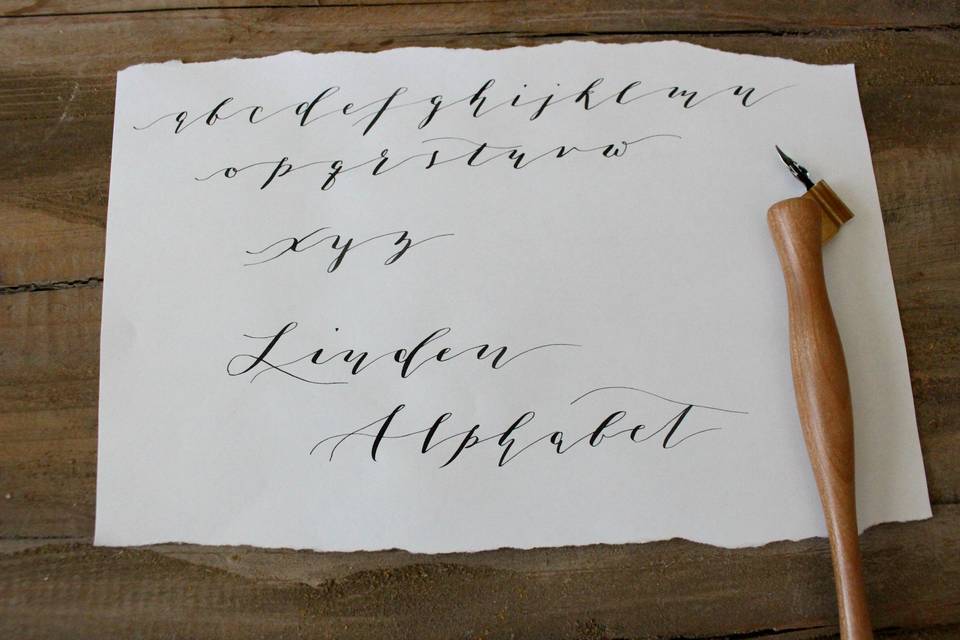 abcdefghijklmn
opqrstuvw
xyz
Linden
Alphabet